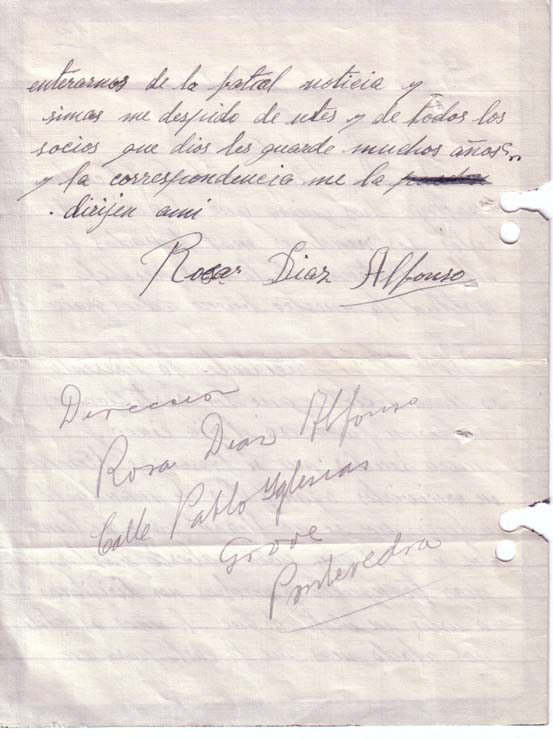 enterarnos de la fatal noticia y
simas me despido de utes y de todos los
socios que dios les guarde muchos años
y la correspondencia me la
dirijen ami
Rosa Diaz Alfonso
Direccion
Rosa Diaz Alfonso
Calle Pablo Yglesias
Grove
Pontevedra